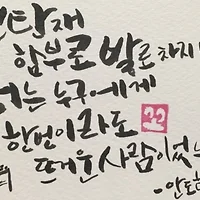 탄재
함부로 발로 차지
너는 누구에게
한번이라도
뜨거운 사람이었
-안도